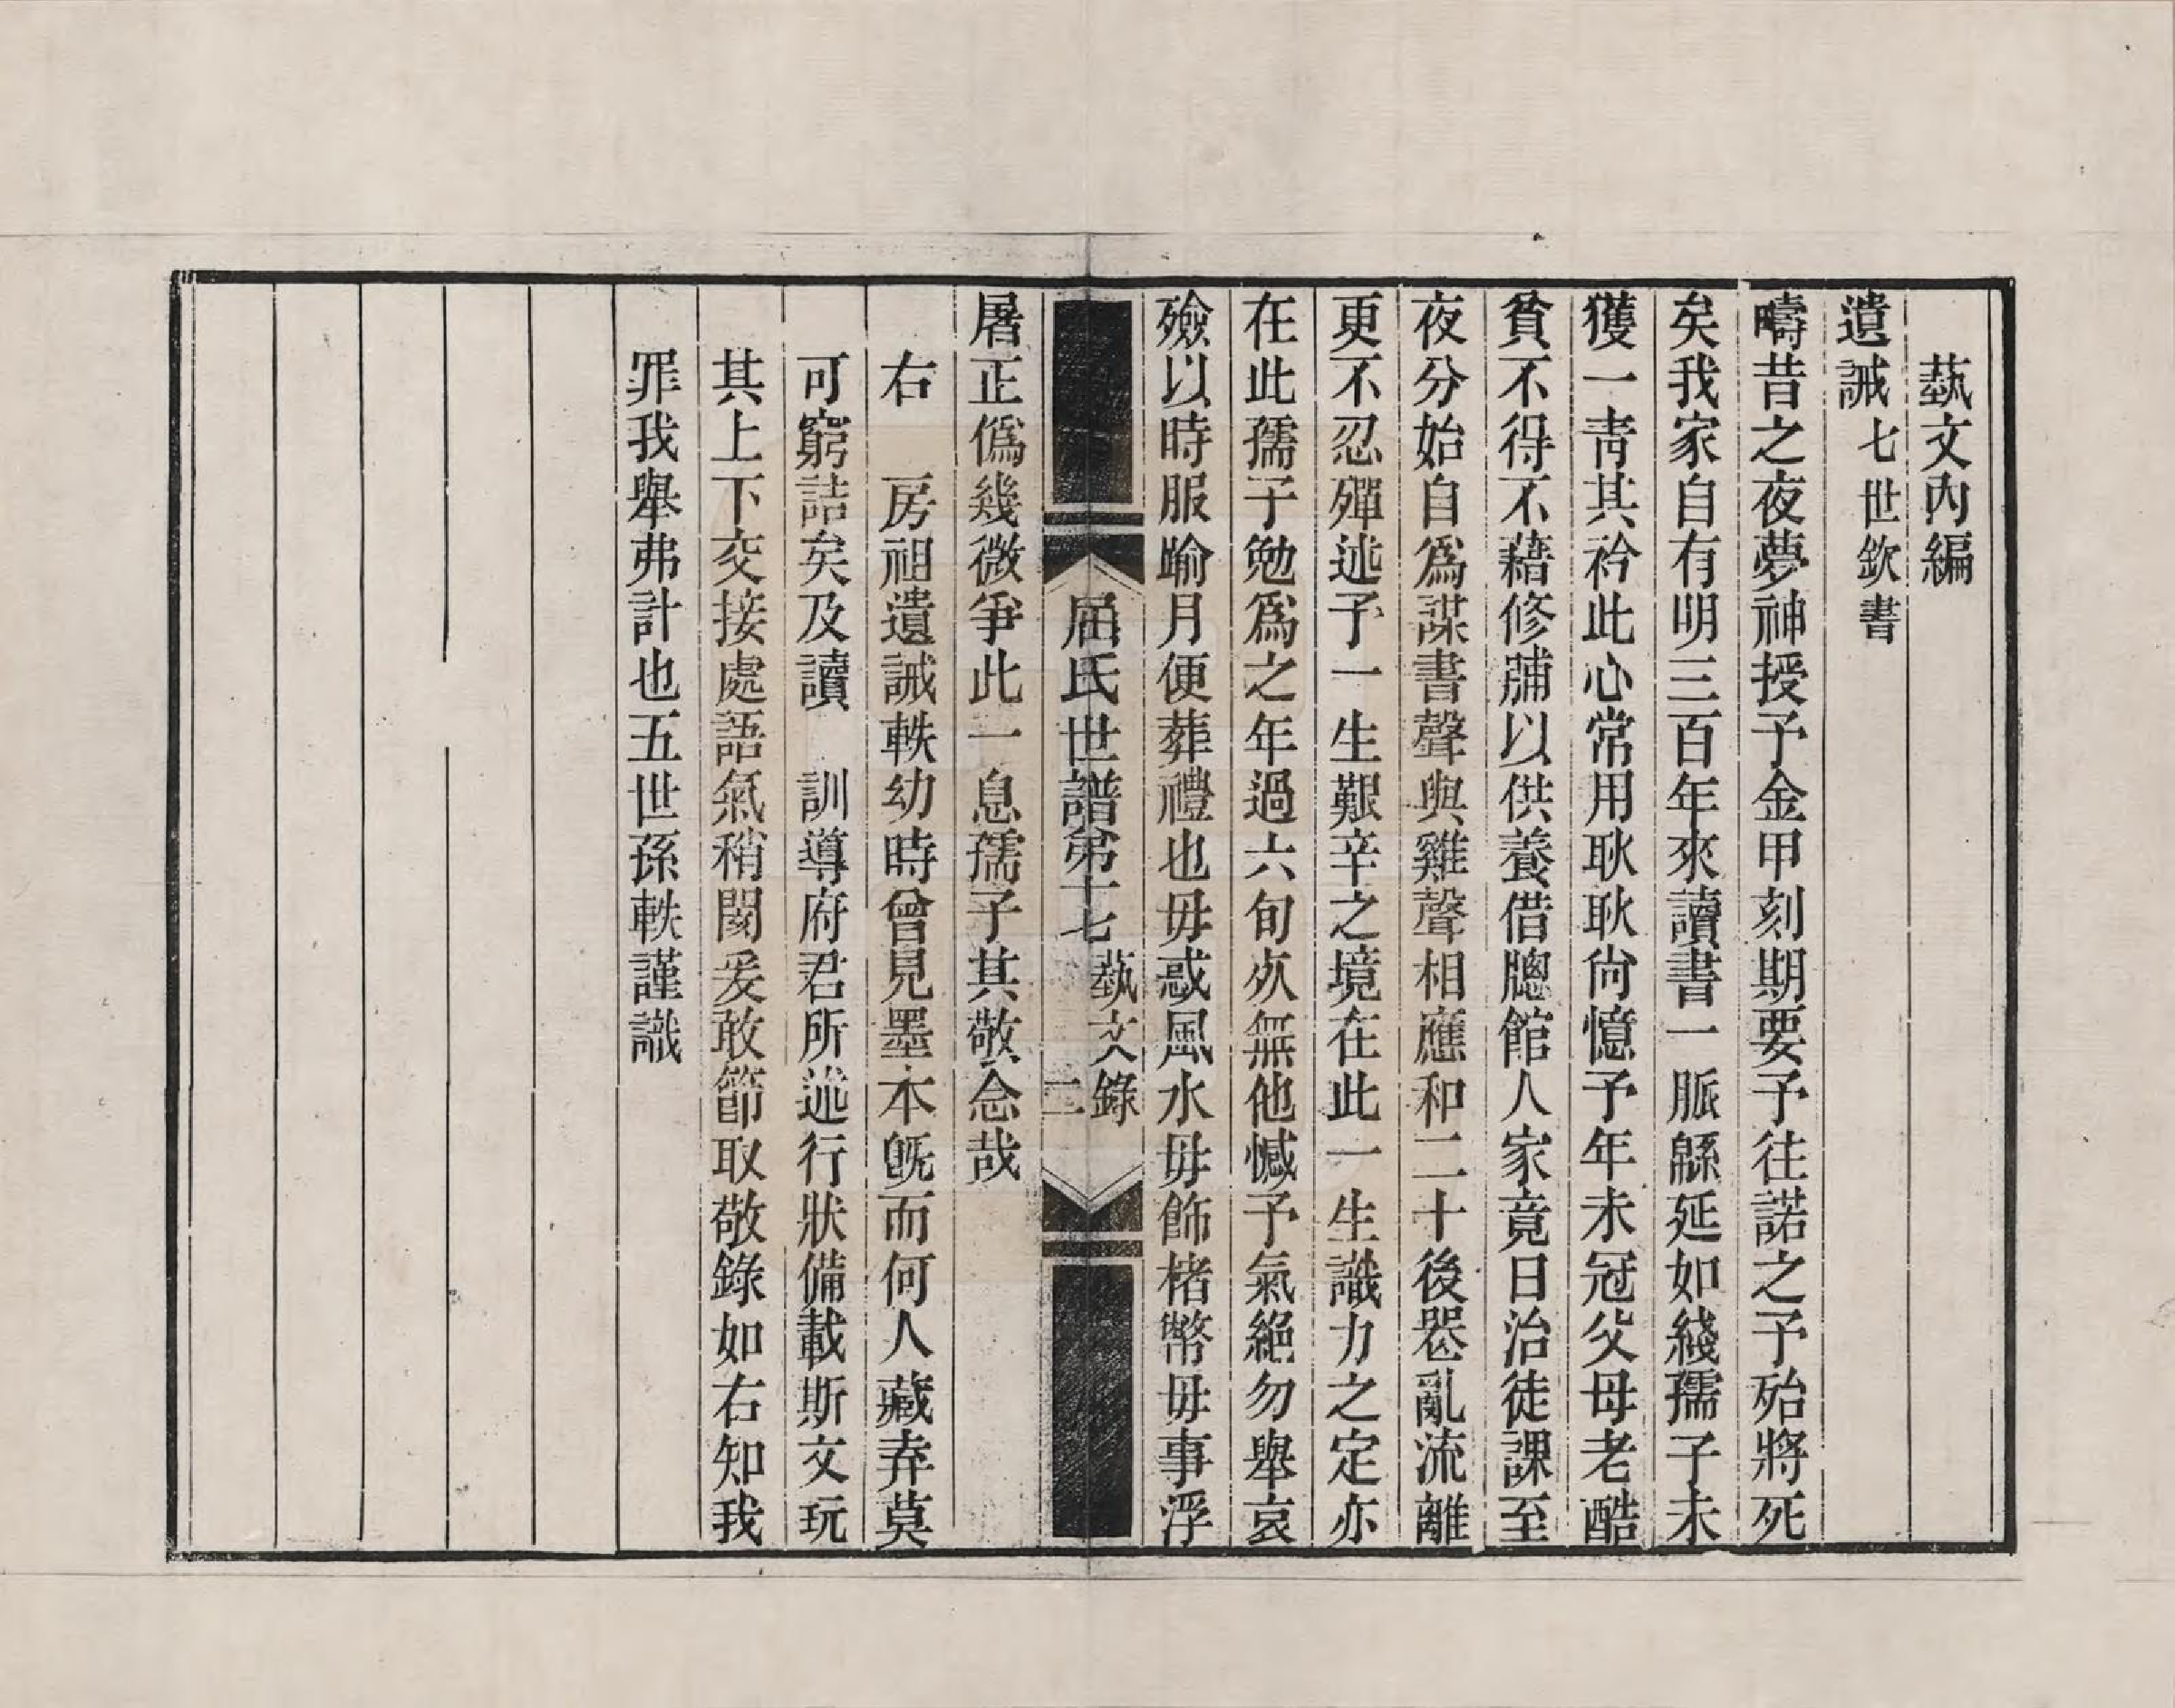 蓺文內編
遺誡七世欽書
疇昔之夜夢神授予金甲刻期要予往諾之予殆將死
矣我家自有明三百年來讀書一脈緜延如綫孺子未
獲一靑其衿此心常用耿耿尙憶予年未冠父母老酷
貧不得不藉修脯以供養借驄館人家竟日治徒課至
夜分始自爲謀書聲與雞聲相應和二十後罹亂流離
更不忍殫述予一生艱辛之境在此一生識力之定亦
在此孺子勉爲之年過六旬㱙無他憾予氣絕勿舉哀
殮以時服踰月便葬禮也毋惑風水毋飾楮幣毋事浮
屠正僞幾微爭此一息孺子其敬念哉
右　房祖遺誡軼幼時曾見墨本旣而何人藏弆莫
可窮詰矣及讀　訓導府君所述行狀備載斯文玩
其上下交接處語氣稍閡爰敢節取敬錄如右知我
罪我舉弗計也五世孫軼謹識
屆氏世譜弟十七　蓺文錄　二